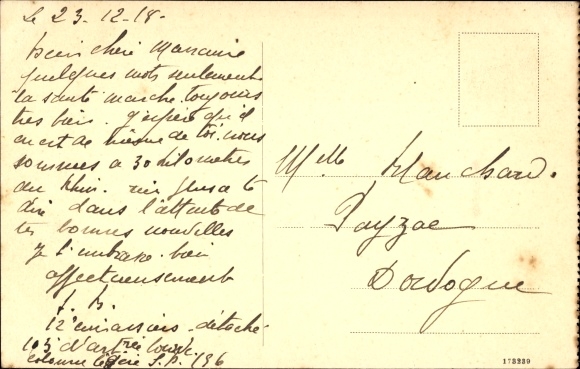 Le 23-12-18-
bien chère Marraine
quelques mots seulement
la santé marche toujours
tres bien. j'espère qu'il
en est de même de toi. nous
sommes a 30 kilometres
du Rhin. rien plus a te
dire dans l'attente de
tes bonnes nouvelles
je t'embrasse bien
affectueusement
J. B.
12e cuirassiers détaché
105 d'artrie lourde
colonne légère S.P. 196
Melle Marchard.
Payzac
Dordogne
178239